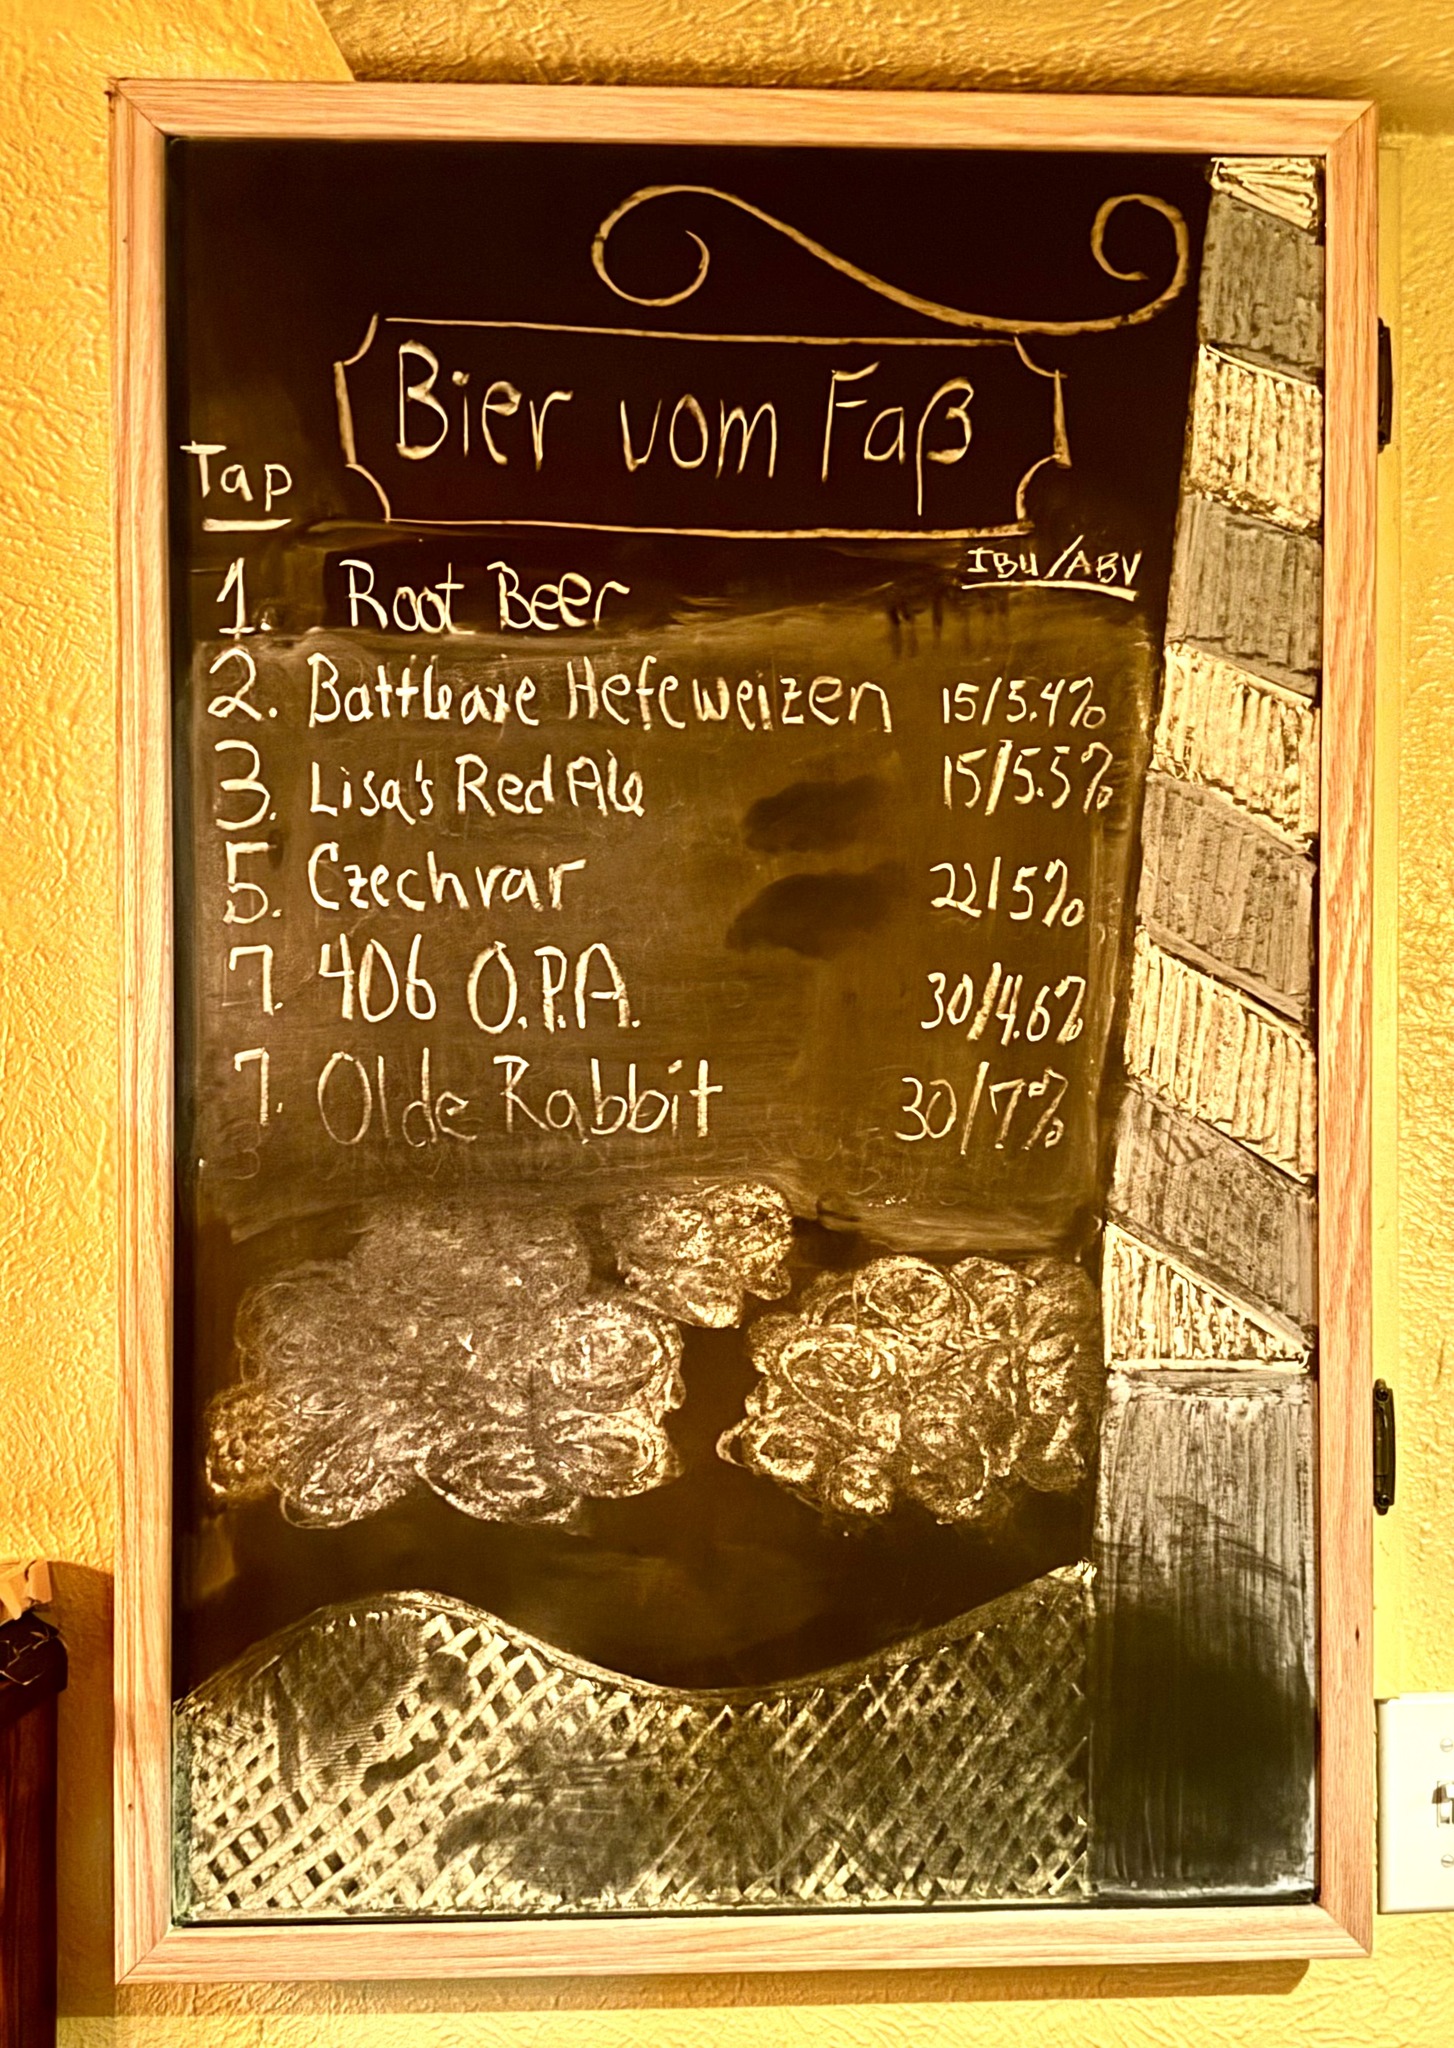 Bier vom Faß
Tap
IBU/ABV
1. Root Beer
2. Battleaxe Hefeweizen 15/5.4%
3. Lisa's Red Ale 15/5.5%
5. Czechvar 22/5%
7. 406 O.P.A. 30/4.6%
7. Olde Rabbit 30/7%